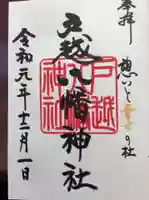 奉拝
想いとどけの社
戸越八幡神社
戸越八幡神社
令和元年十二月一日